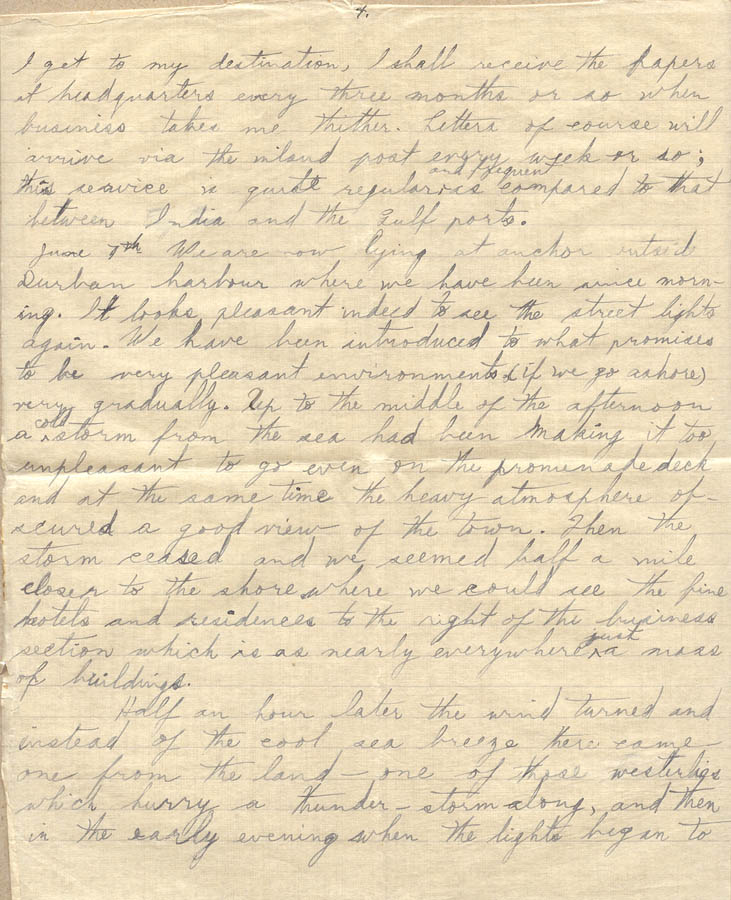 4.
I get to my destination, I shall receive the papers
at headquarters every three months or so when
business takes me thither. Letters of course will
arrive via the inland post every week or so;
and frequent
this service is quite regular as compared to that
between India and the Gulf ports.
June 7th We are now lying at anchor outside
Durban harbour where we have been since morn-
ing. It looks pleasant indeed to see the street lights
again. We have been introduced to what promises
to be very pleasant environments (if we go ashore)
very gradually. Up to the middle of the afternoon
cold
a storm from the sea had been making it too
unpleasant to go even on the promenade deck
and at the same time the heavy atmosphere ob-
scured a good view of the town. Then the
storm ceased and we seemed half a mile
closer to the shore where we could see the fine
hotels and residences to the right of the business
just
section which is as nearly everywhere a mass
of buildings.
Half an hour later the wind turned and
instead of the cool sea breeze there came
one from the land — one of those westerlies
which hurry a thunder-storm along, and then
in the early evening when the lights began to